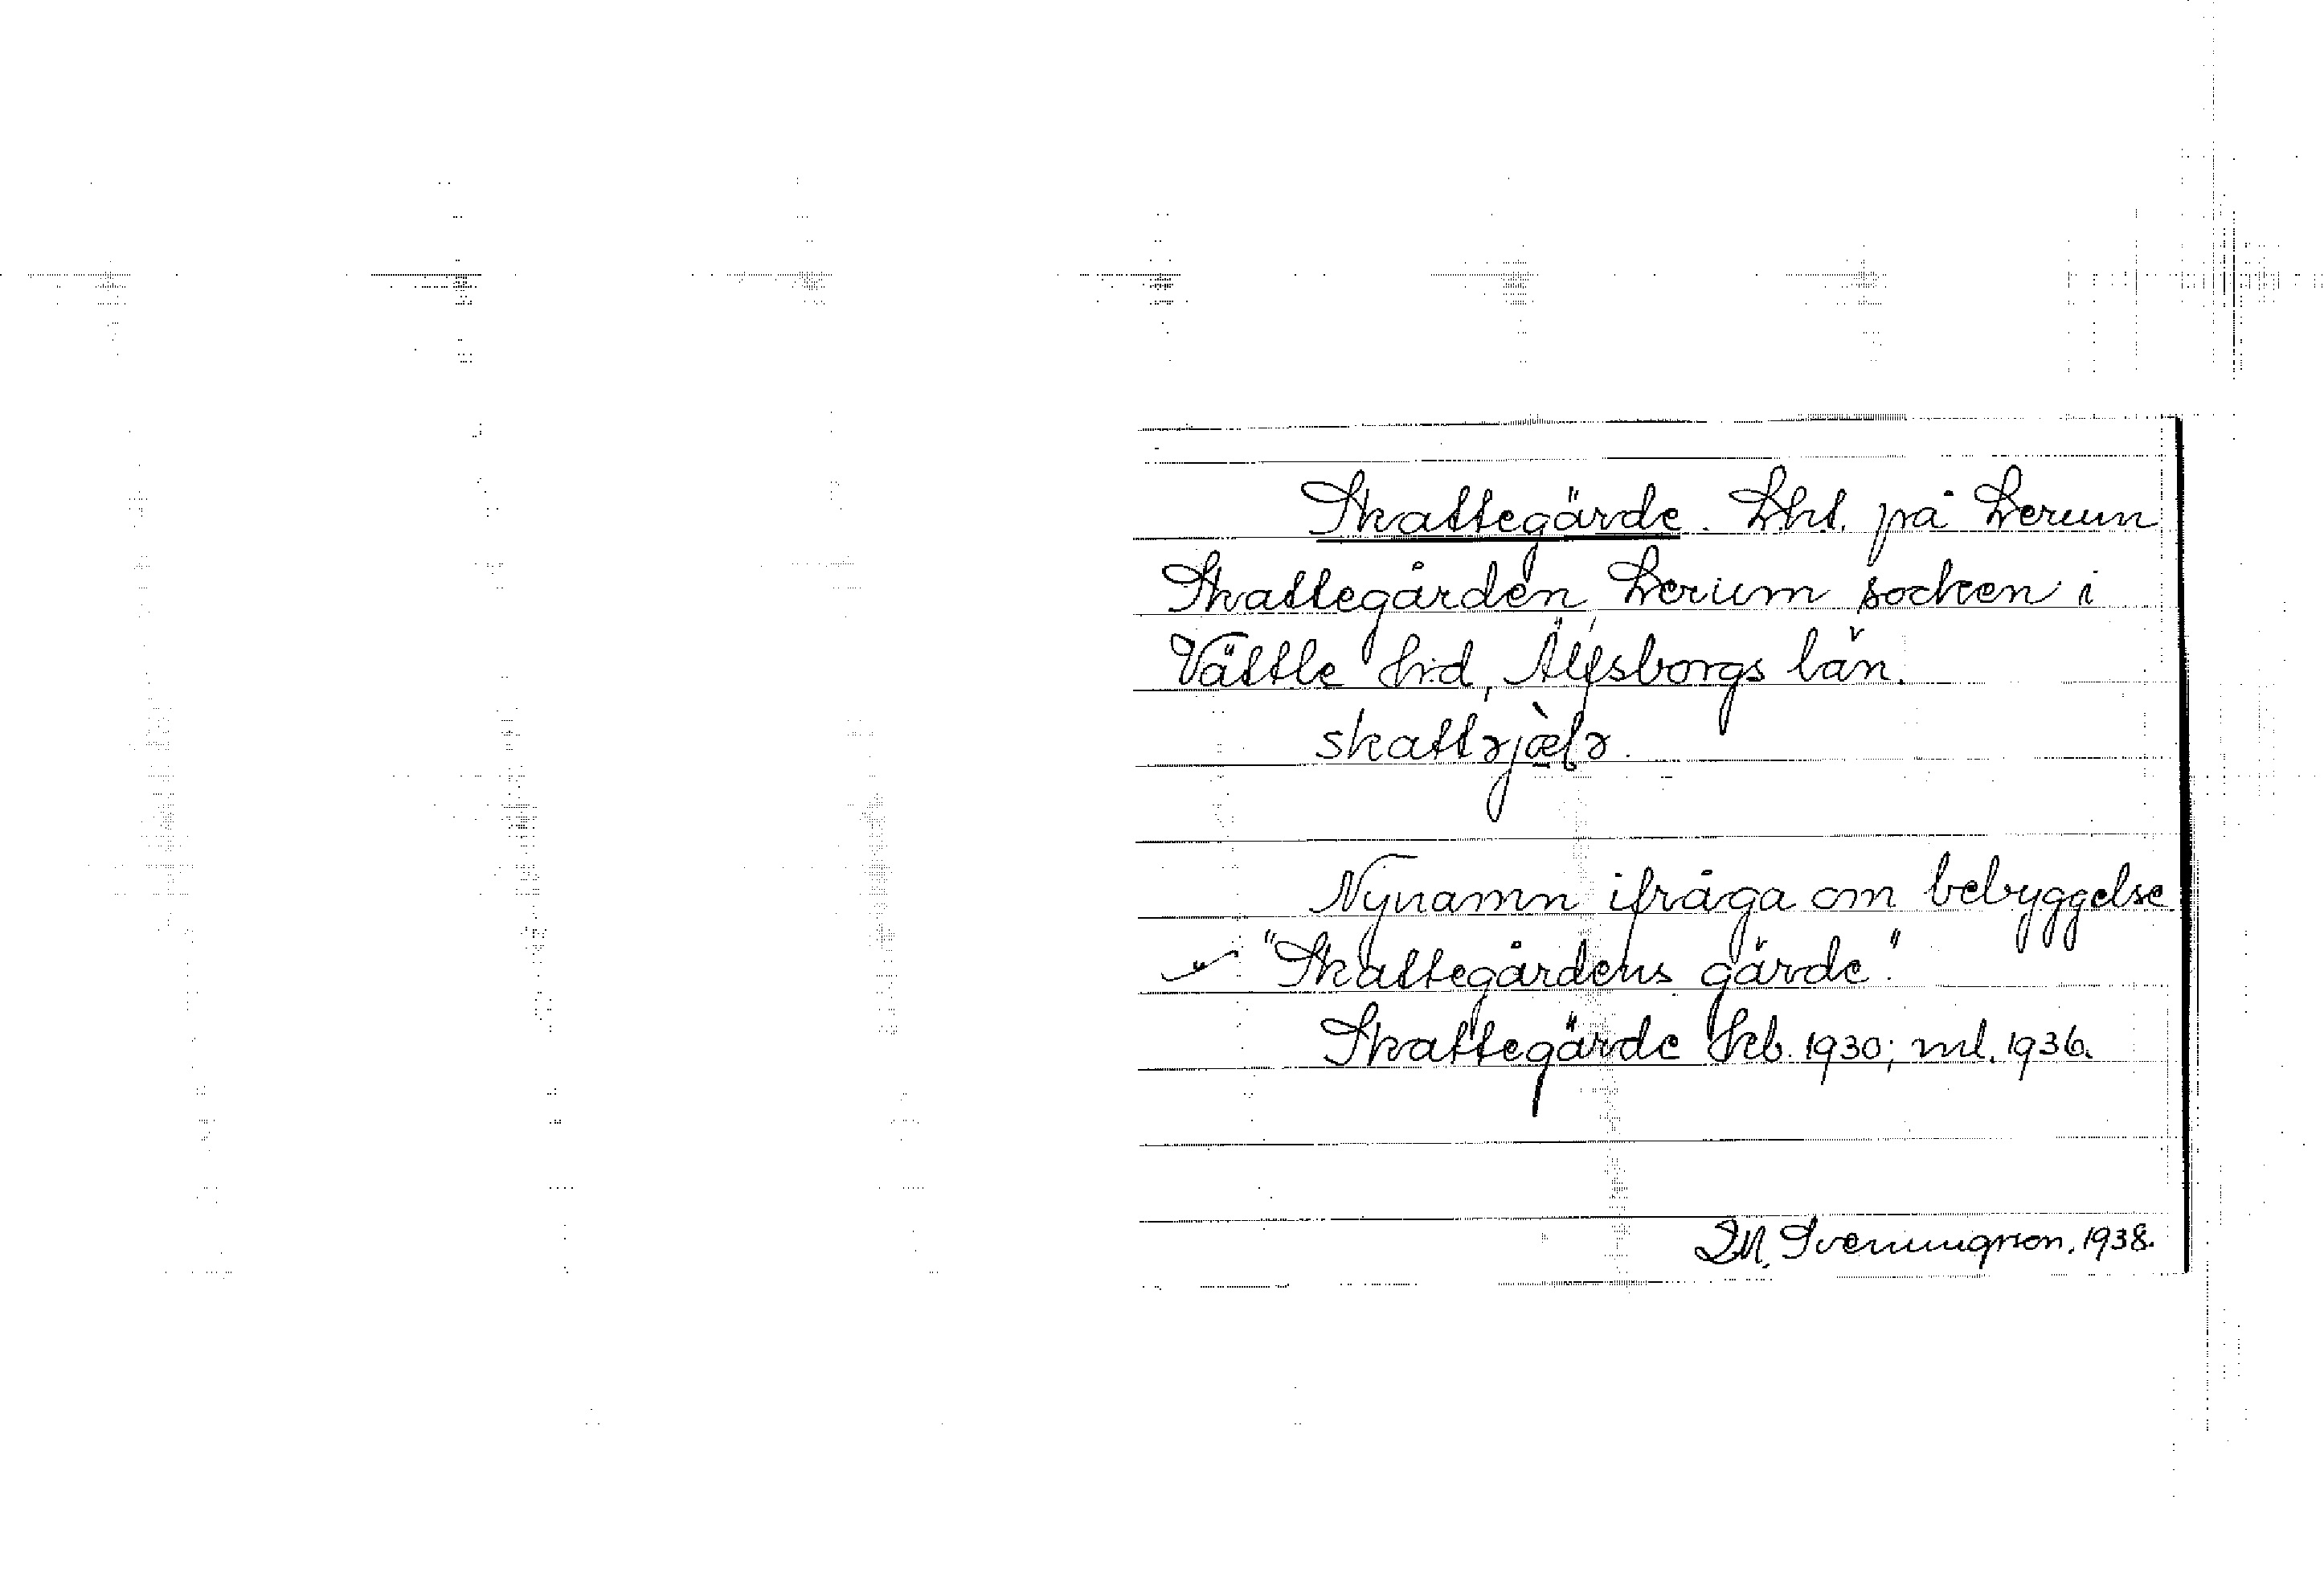 Skattegärde. Lht. på Lerum
Skattegården Lerum socken i
Vättle hd, Älfsborgs län.
Nynamn ifråga om bebyggelse
"Skattegårdens gärde".
Skattegärde kb. 1930; ml. 1936.
Sveningson. 1938.